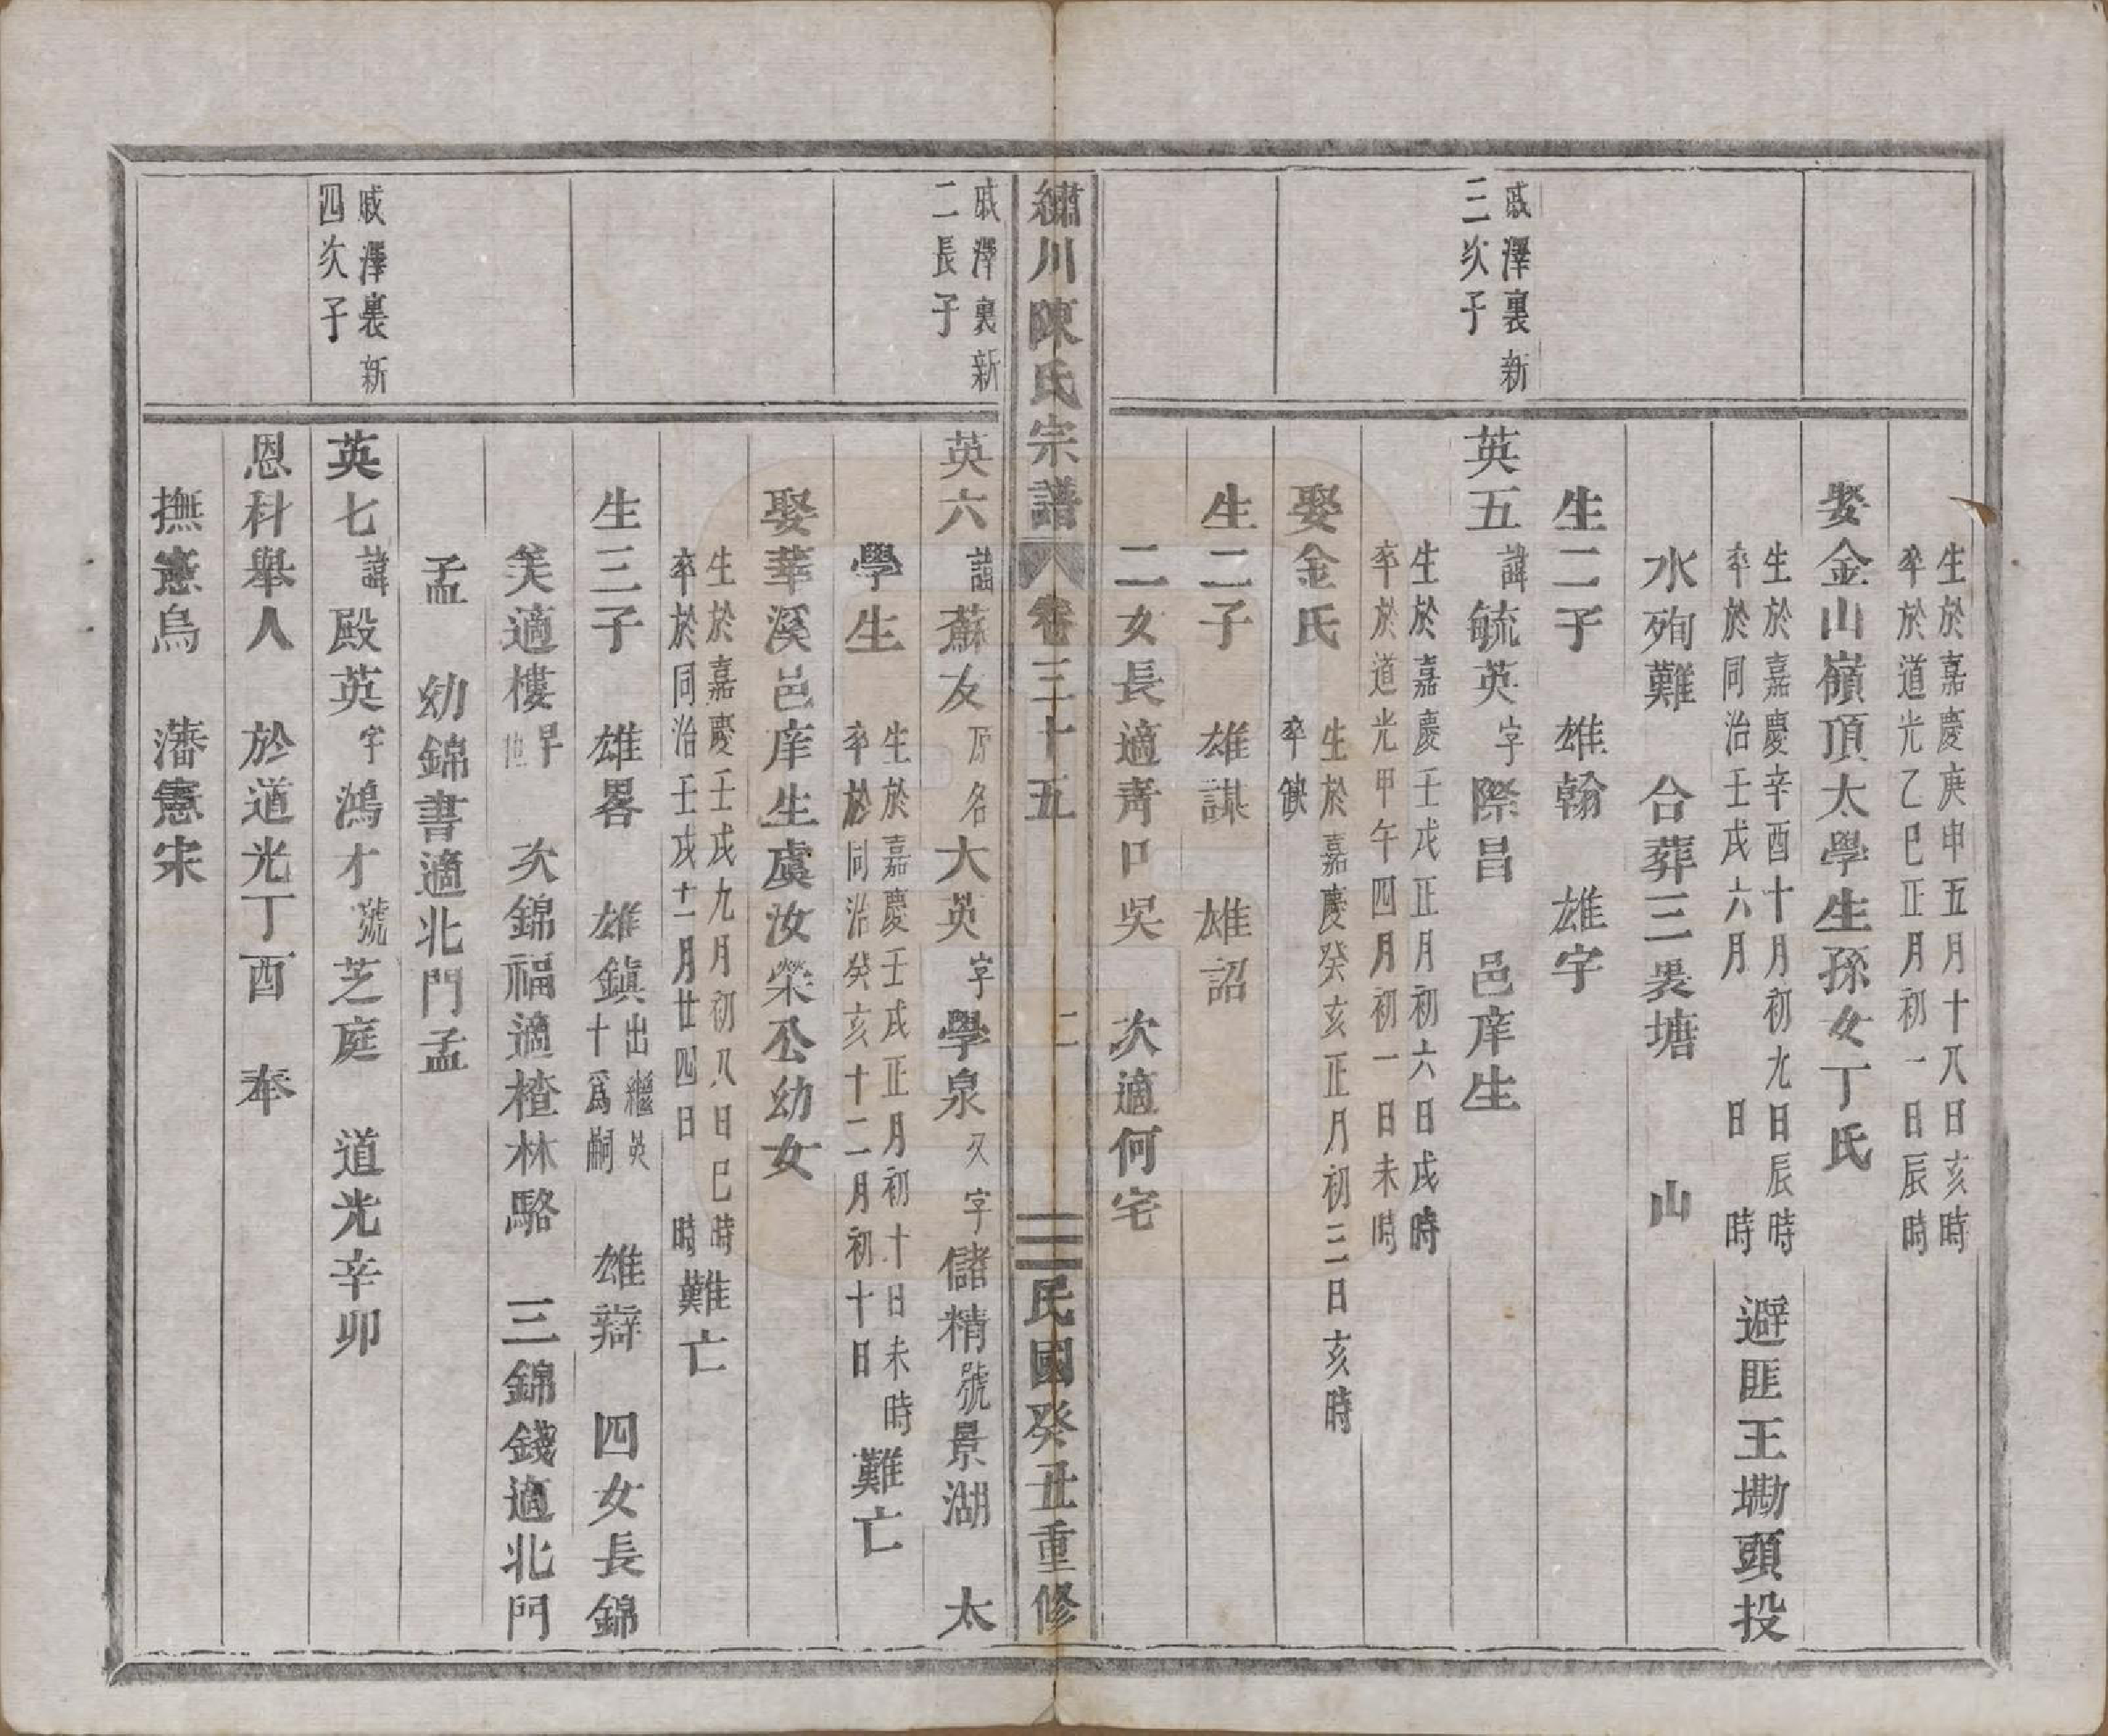 生於嘉慶庚申五月十八日亥時
卒於道光乙巳正月初一日辰時
娶金山嶺頂太學生孫女丁氏
生於嘉慶辛酉十月初九日辰時
卒於同治壬戌六月 日 時
避匪王墈頭投
水殉難 合葬三畏塘 山
生二子 雄翰 雄字
戚澤裏新
三次子
英五 諱毓英 字際昌 邑庠生
生於嘉慶壬戌正月初六日戌時
卒於道光甲午四月初一日未時
娶金氏
生於嘉慶癸亥正月初三日亥時
卒缺
生二子 雄謀 雄詔
二女長適青口吳 次適何宅
繡川陳氏宗譜 卷三十五 二 民國癸丑重修
戚澤裏新
二長子
英六 諱蘇友 原名大英 字學泉 又字儲精 號景湖 太
學生
生於嘉慶壬戌正月初十日未時
卒於同治癸亥十二月初十日
難亡
娶華溪邑庠生虞汝榮公幼女
生於嘉慶壬戌九月初八日巳時
卒於同治壬戌十二月廿四日 時
難亡
生三子 雄畧 雄鎮 出繼英十爲嗣 雄辯 四女長錦
美適樓 早世 次錦福適楂林駱 三錦錢適北門
孟 幼錦書適北門孟
戚澤裏新
四次子
英七 諱殿英 字鴻才 號芝庭 道光辛卯
恩科舉人 於道光丁酉 奉
撫憲烏 藩憲宋